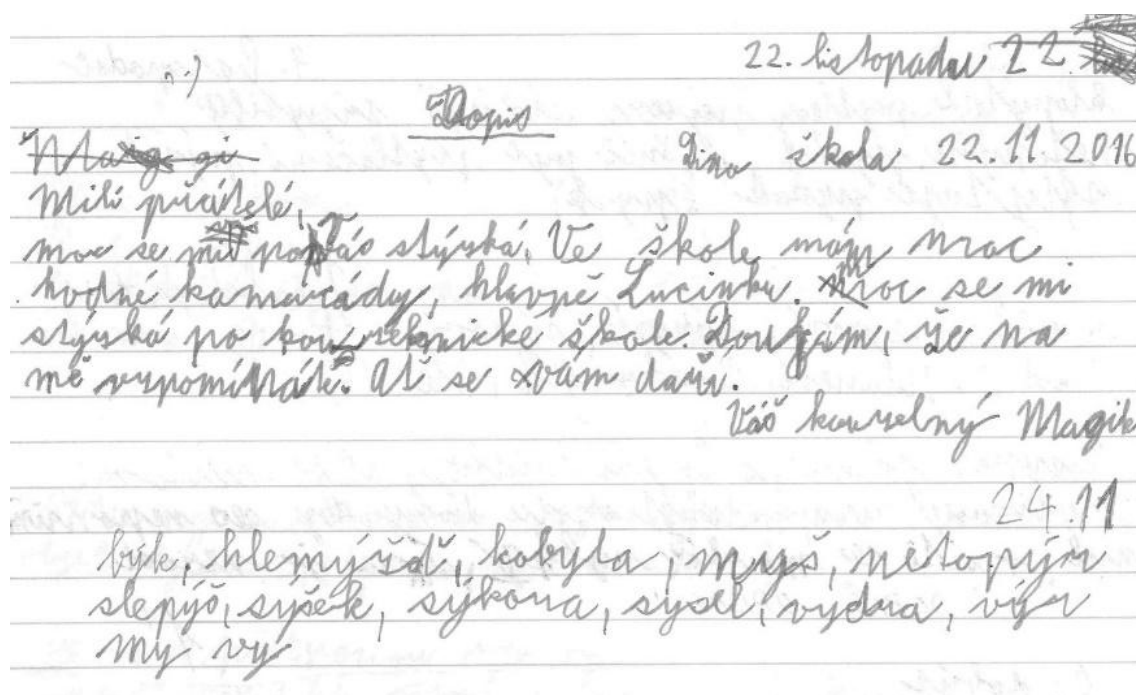 22. listopadu 22
:)
Dopis
Dino škola 22.11 2016
Milí přátelé,
moc se mi po Vás stýská. Ve škole mám moc
hodné kamarády, hlavně Lucinku. Moc se mi
stýská po kouzelnické škole. Doufám, že na
mě vzpomínáte. Ať se vám daří.
Váš kouzelný Magik
24.11
býk, hlemýžď, kobyla, myš, netopýr
slepýš, sýček, sýkora, sysel, vydra, výr
my vy